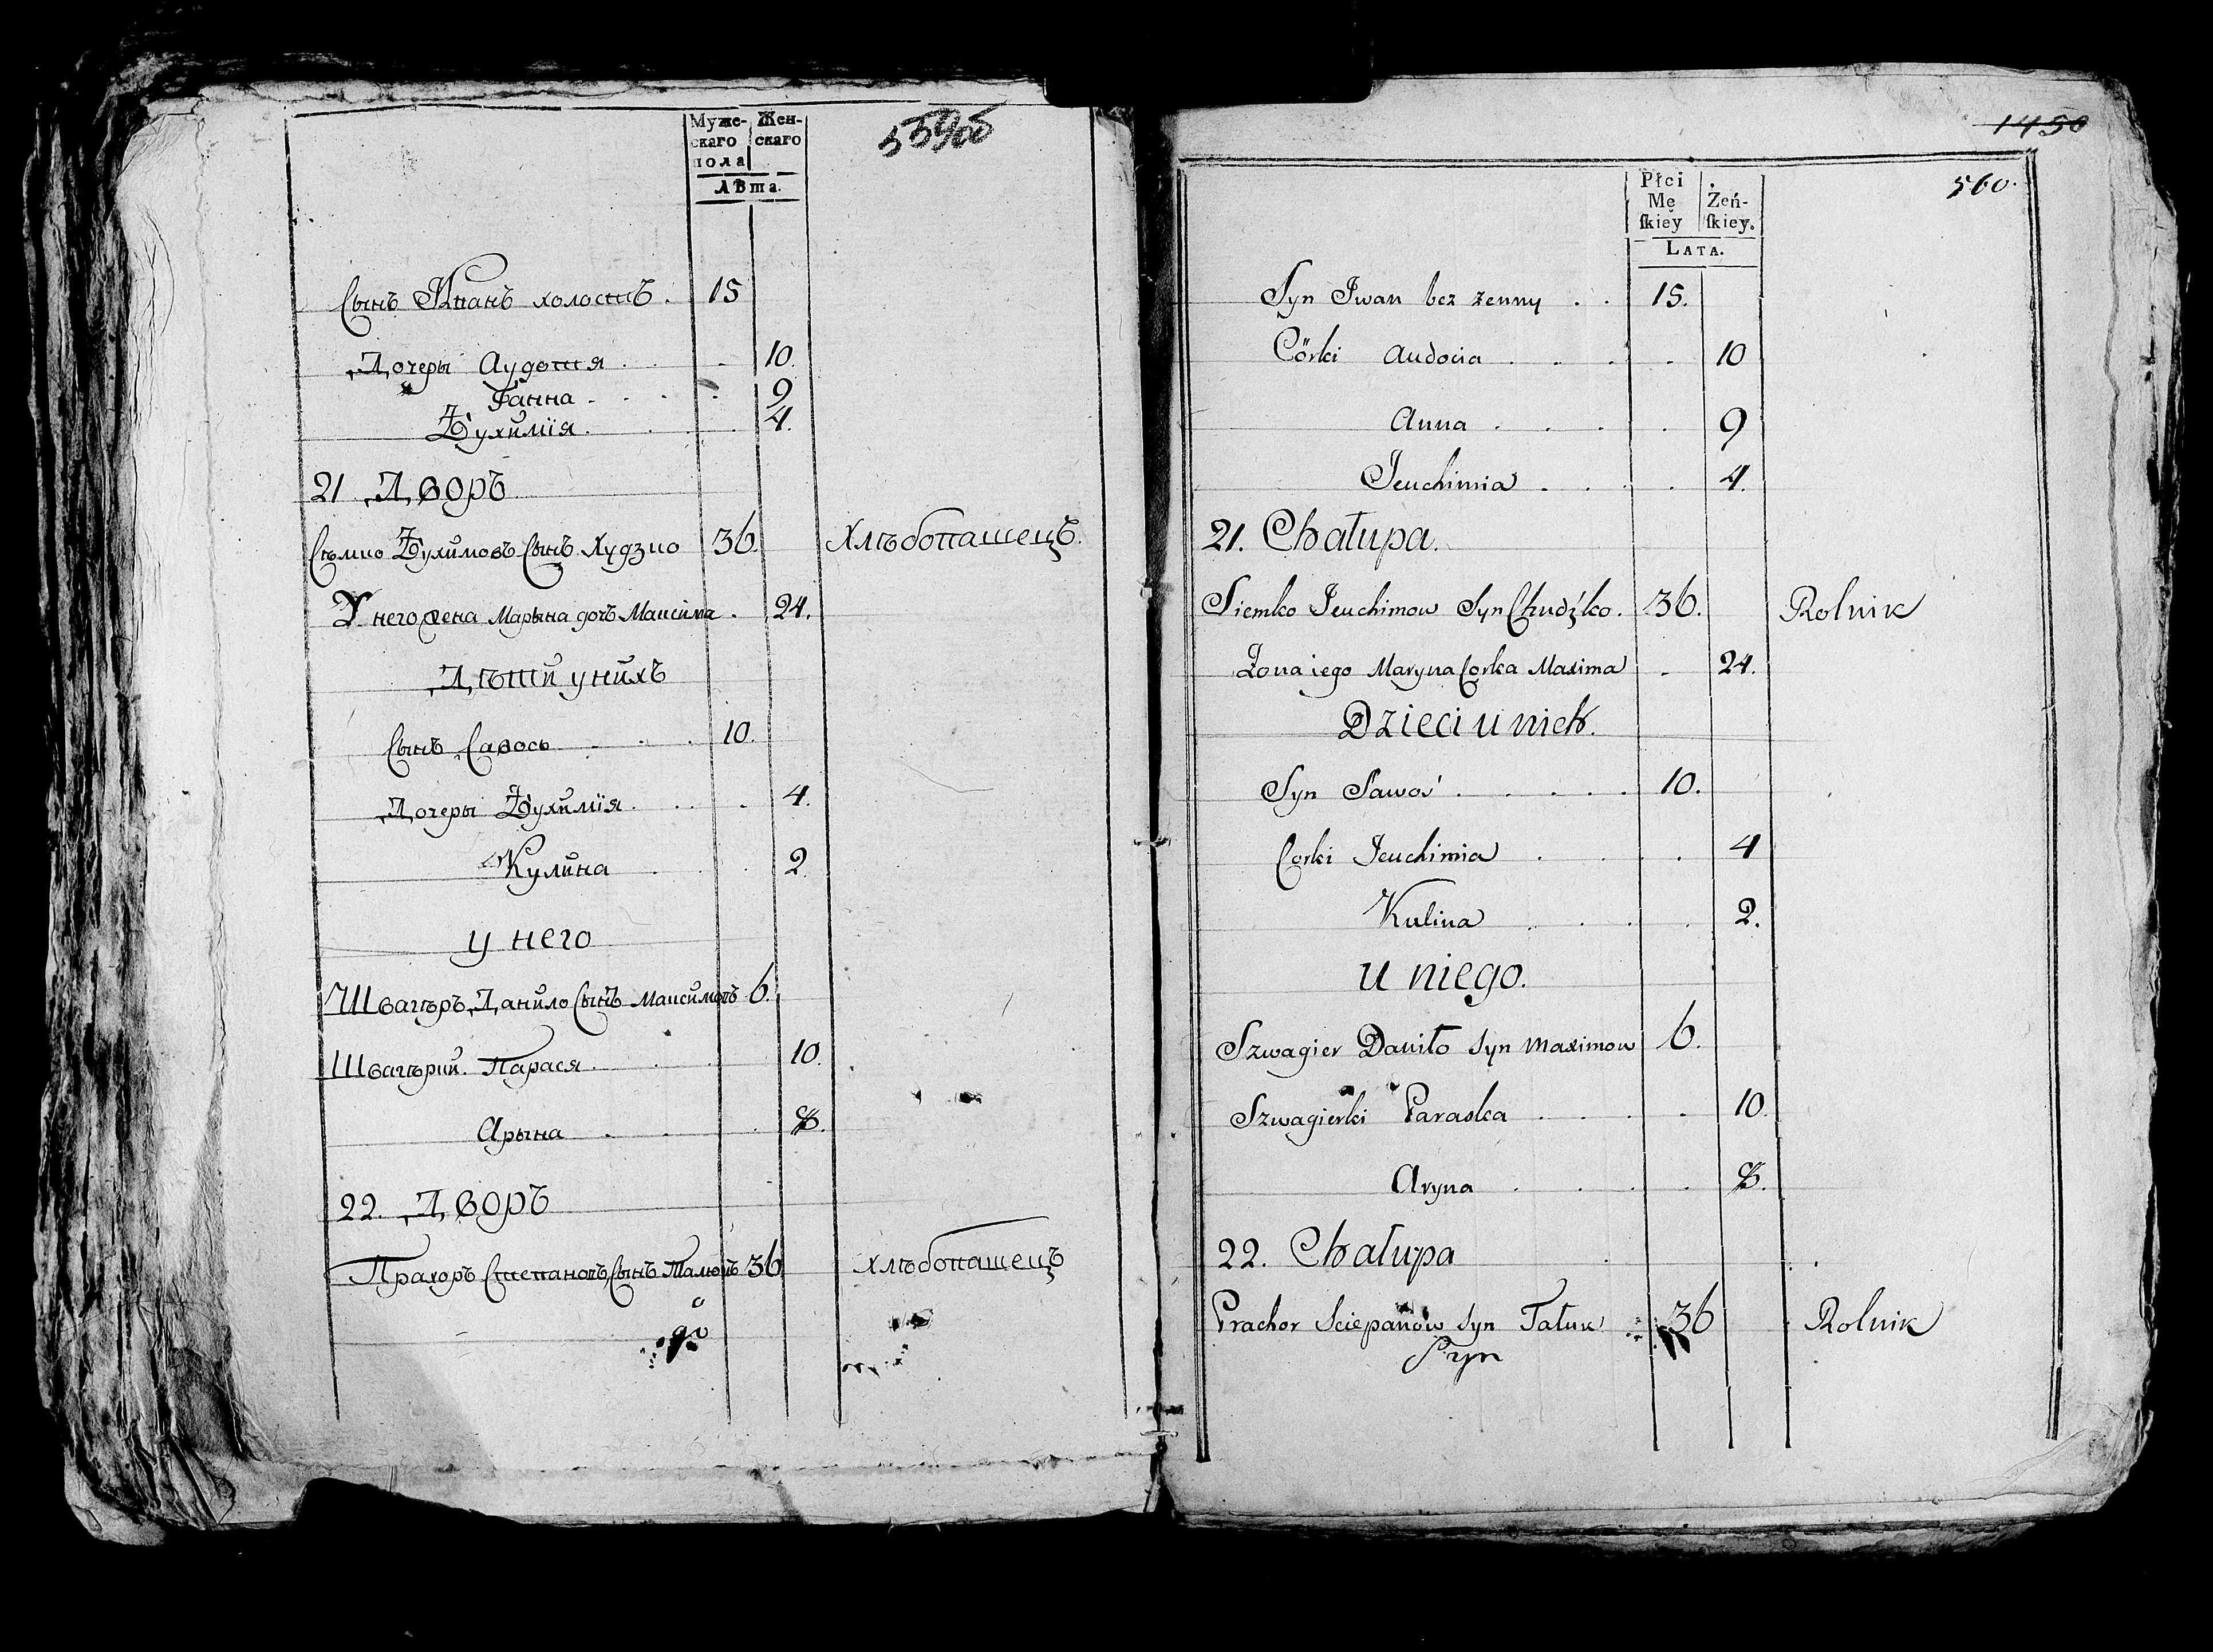 Муже- Жен-
скаго скаго
пола
лѣта.
559об
Сынъ Иванъ холостъ . 15
Дочеры Аудотія . . . 10.
Ганна . . . . 9
Ѣухимія . . . 4.
21 Дворъ
Сѣмко Ѣухимовъ Сынъ Худзко 36. Хлѣбопашецъ.
У него жена Марына дочъ Максима . 24.
Дѣти унихъ
Сынъ Савось . . . 10.
Дочеры Ѣухимія . . . 4.
Кулина . . . 2.
у него
Швагѣръ Данило Сынъ Максимовъ 6.
Швагѣрки Парася . . . 10.
Арына . . . 8.
22. Дворъ
Прахоръ Степановъ Сынъ Талюкъ 36 хлѣбопашецъ
1450
560.
Płci Żeń-
Mę ſkiey.
ſkiey
Lata.
Syn Iwan bez zenny . . 15.
Córki Audocia . . . . 10
Anna . . . . 9
Jeuchimia . . . . 4.
21. Chałupa.
Siemko Jeuchimow Syn Chudźko . 36. Rolnik
Żona jego Maryna Corka Maxima - 24.
Dzieci u nich.
Syn Sawoś . . . . . 10.
Corki Jeuchimia . . . . 4
Kulina . . . . 2.
u niego.
Szwagier Daniło syn Maximow 6.
Szwagierki Paraska . . . . 10.
Aryna . . . . 8.
22. Chałupa
Prachor Sciepanow syn Tałuk 36 Rolnik
Syn